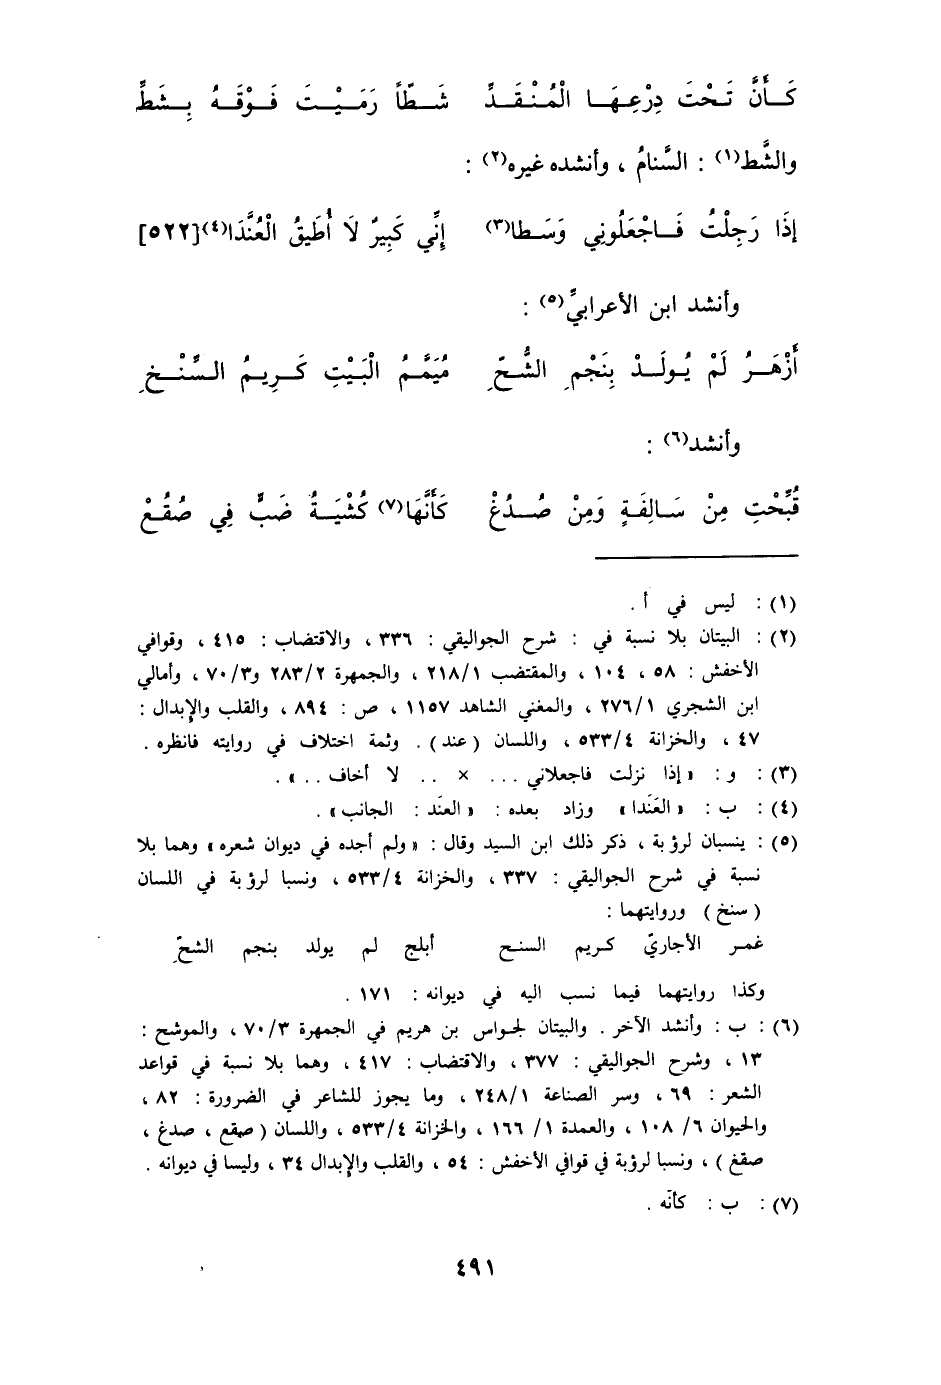 كَـأَنَّ تَـحْتَ دِرْعِـهَـا الْمُنْـقَـدِّ شَـطّاً رَمَـيْـتَ فَـوْقَـهُ بِـشَـطِّ
والشَّط(١) : السَّنامُ ، وأنشده غيره(٢) :
إذَا رَحِلْتُ فَـاجْعَلُونِي وَسَـطا(٣) إنِّي كَبِيرٌ لَا أُطَيقُ الْعُنَّدَا(٤)[٥٢٢]
وأنشد ابن الأعرابيِّ(٥) :
أَزْهَـرُ لَمْ يُـولَـدْ بِنَجْمِ الشُّـحّ مُيَمَّـمُ الْبَيْتِ كَـرِيـمُ الـسِّنْـخِ
وأنشد(٦) :
قُبِّحْتِ مِنْ سَـالِفَـةٍ وَمِنْ صُـدُغْ كَأَنَّهَا(٧) كُشْيَـةُ ضَبٍّ فِي صُقُـعْ
(١) : ليس في أ .
(٢) : البيتان بلا نسبة في : شرح الجواليقي : ٣٣٦ ، والاقتضاب : ٤١٥ ، وقوافي
الأخفش : ٥٨ ، ١٠٤ ، والمقتضب ٢١٨/١ ، والجمهرة ٢٨٣/٢ و٧٠/٣ ، وأمالي
ابن الشجري ٢٧٦/١ ، والمغني الشاهد ١١٥٧ ، ص : ٨٩٤ ، والقلب والإبدال :
٤٧ ، والخزانة ٥٣٣/٤ ، واللسان ( عند ) . وثمة اختلاف في روايته فانظره .
(٣) : و : « إذا نزلت فاجعلاني ... × .. لا أخاف .. » .
(٤) : ب : « العَنَدا » وزاد بعده : « العنَد : الجانب » .
(٥) : ينسبان لرؤبة ، ذكر ذلك ابن السيد وقال : « ولم أجده في ديوان شعره » وهما بلا
نسبة في شرح الجواليقي : ٣٣٧ ، والخزانة ٥٣٣/٤ ، ونسبا لرؤبة في اللسان
( سنخ ) وروايتهما :
غمـر الأجاريّ كـريم السنـح أبلج لم يولد بنجم الشحّ
وكذا روايتهما فيما نسب اليه في ديوانه : ١٧١ .
(٦) : ب : وأنشد الآخر . والبيتان لجواس بن هريم في الجمهرة ٧٠/٣ ، والموشح :
١٣ ، وشرح الجواليقي : ٣٧٧ ، والاقتضاب : ٤١٧ ، وهما بلا نسبة في قواعد
الشعر : ٦٩ ، وسر الصناعة ٢٤٨/١ ، وما يجوز للشاعر في الضرورة : ٨٢ ،
والحيوان ٦/ ١٠٨ ، والعمدة ١/ ١٦٦ ، والخزانة ٥٣٣/٤ ، واللسان ( صقع ، صدغ ،
صقغ ) ، ونسبا لرؤبة في قوافي الأخفش : ٥٤ ، والقلب والإبدال ٣٤ ، وليسا في ديوانه .
(٧) : ب : كأنّه .
٤٩١